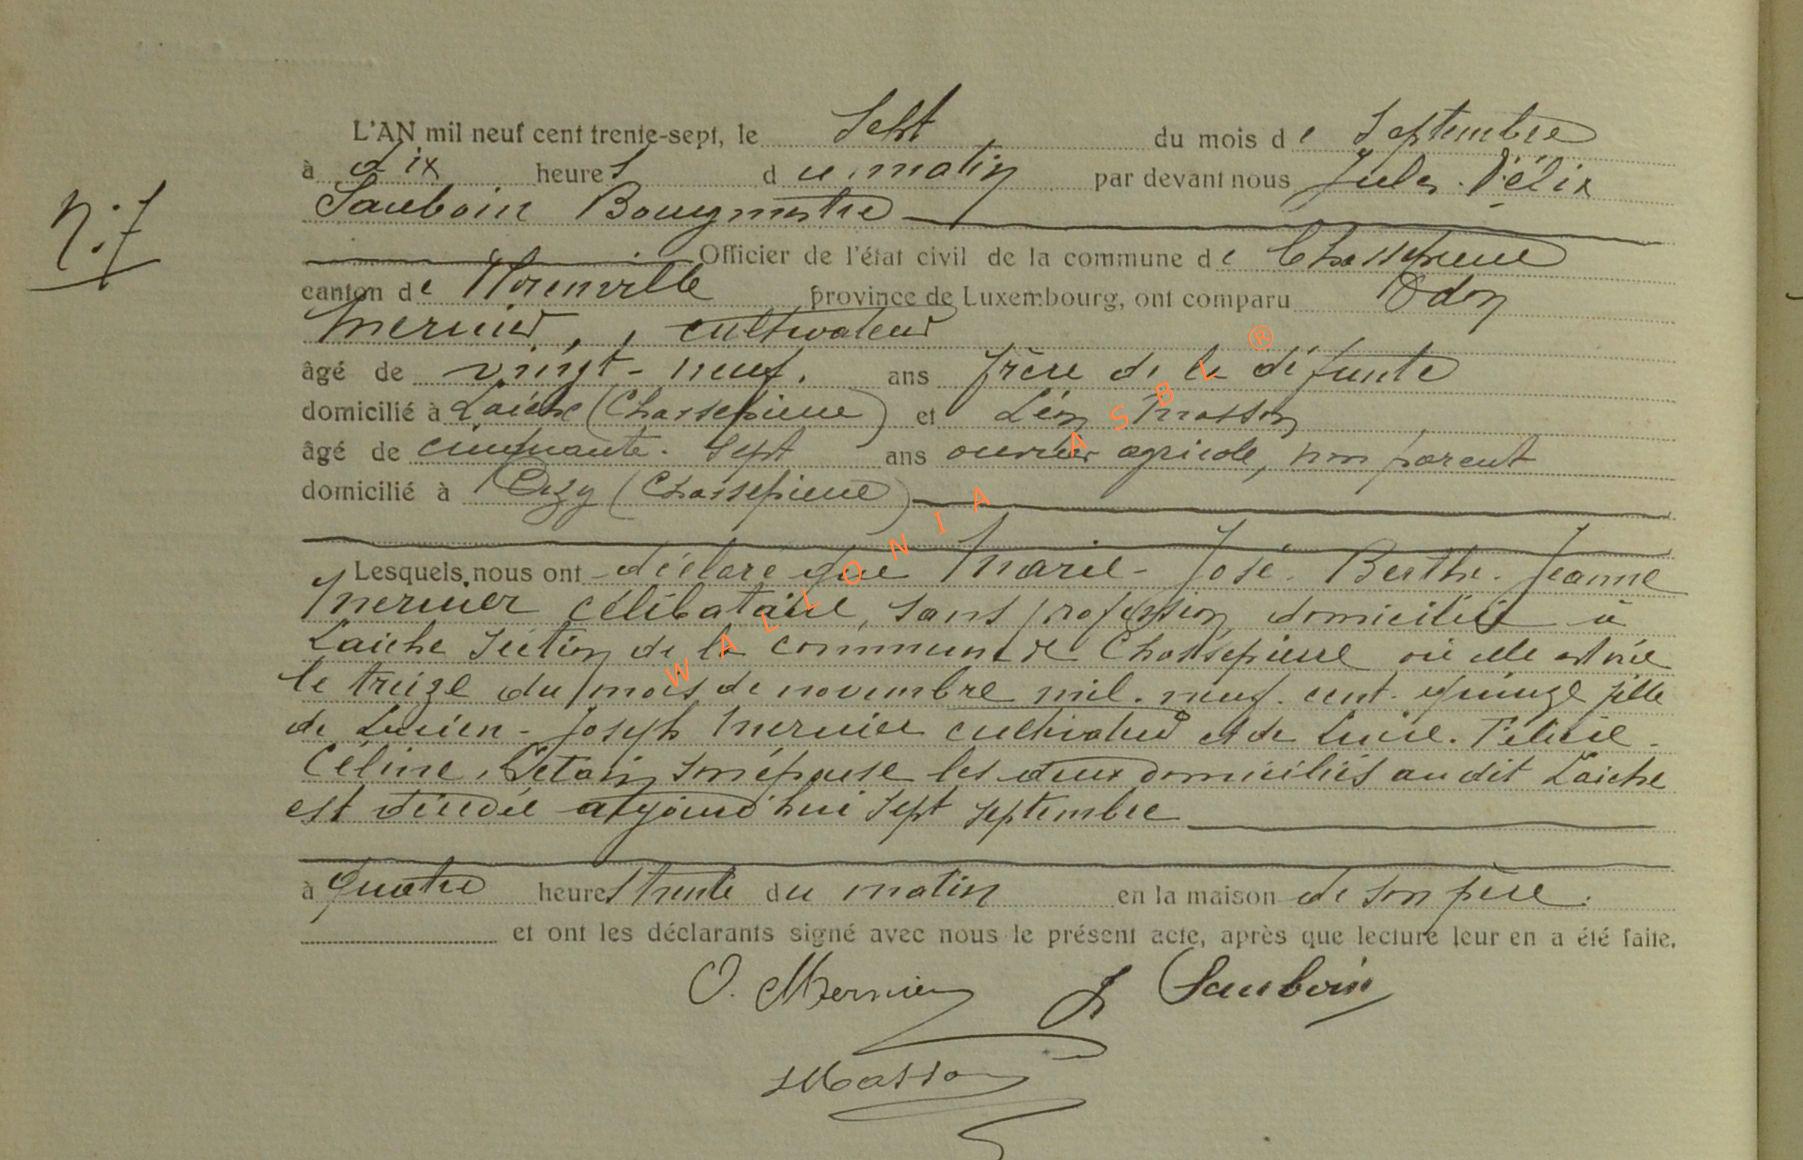 L'AN mil neuf cent trente-sept, le Sept du mois de Septembre
à dix heures du matin par devant nous Jules Félix
N. 7
Sauboin Bourgmestre
Officier de l'état civil de la commune de Chassepierre
canton de Florenville province de Luxembourg, ont comparu Odon
Mernier, cultivateur
âgé de vingt-neuf ans frère de la défunte
domicilié à Laiche (Chassepierre) et Léon Masson
âgé de cinquante-sept ans ouvrier agricole, non parent
domicilié à (Chassepierre)
Lesquels nous ont déclaré que Marie-José-Berthe-Jeanne
Mernier célibataire, sans profession domiciliée à
Laiche section de la commune de Chassepierre où elle est née
le treize du mois de novembre mil-neuf-cent-quinze fille
de Lucien-Joseph Mernier cultivateur et de Lucie-Félicie-
Céline, son épouse les deux domiciliés au dit Laiche
est décédée aujourd'hui sept septembre
à quatre heures trente du matin en la maison de son père.
et ont les déclarants signé avec nous le présent acte, après que lecture leur en a été faite.
O. Mernier J Sauboin
LMasson
WALLONIA ASBL ®